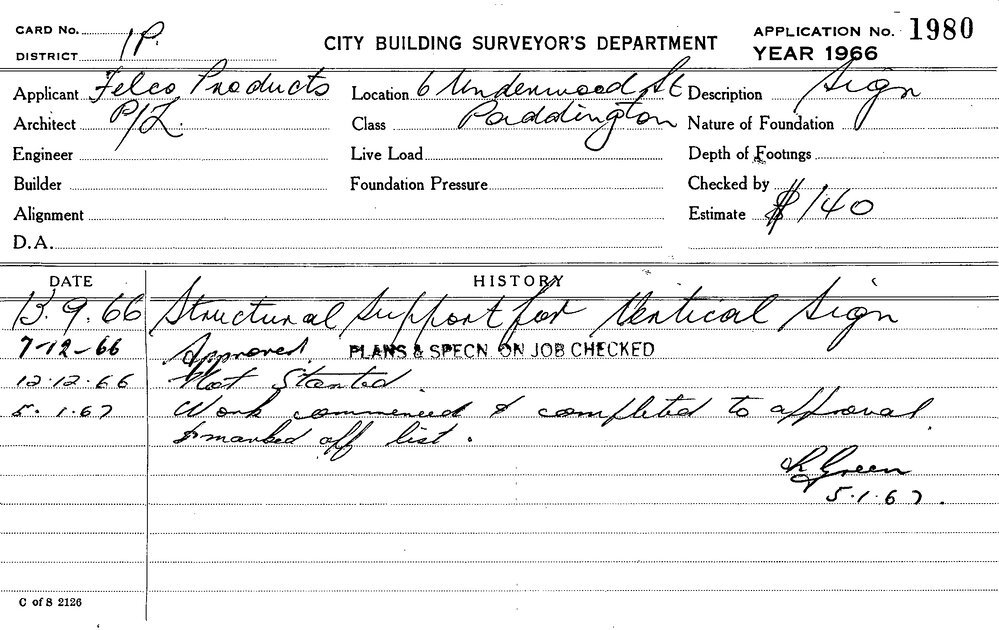 CARD No.
DISTRICT 1P.
CITY BUILDING SURVEYOR'S DEPARTMENT
APPLICATION No. 1980
YEAR 1966
Applicant Felco Products
Architect P/L.
Engineer
Builder
Alignment
D.A.
Location 6 Underwood St
Class Paddington
Live Load
Foundation Pressure
Description Sign
Nature of Foundation
Depth of Footings
Checked by
Estimate $140
DATE HISTORY
13.9.66 Structural Support for Vertical Sign
7-12-66 Approved. PLANS & SPECN. ON JOB CHECKED
12.12.66 Not Started.
5.1.67 Work commenced & completed to approval.
& marked off list.
Green
5.1.67.
C of S 2126